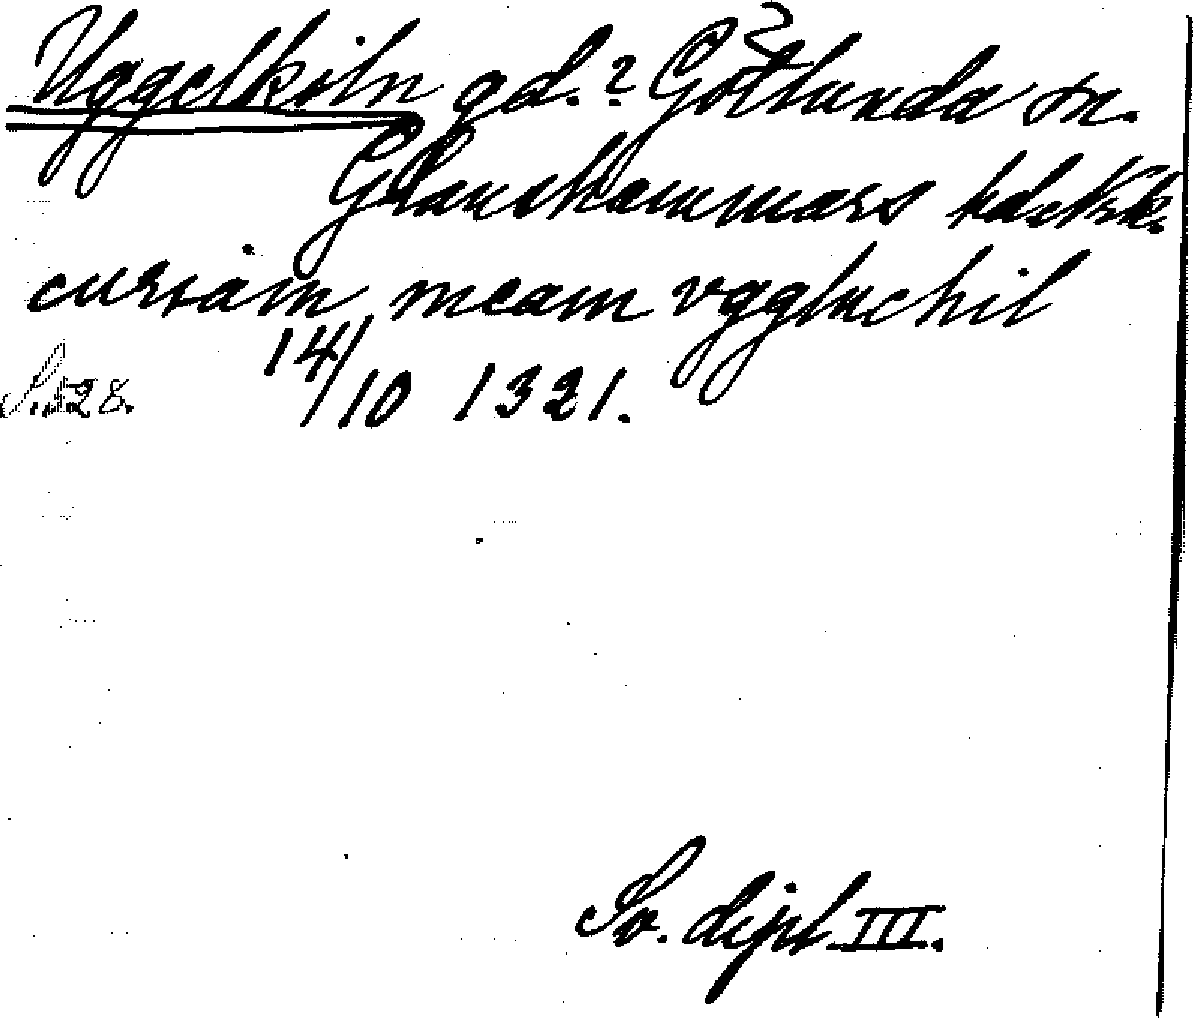 Uggelkiln gd.? Götlunda sn.
Glanshammars hd
curiam meam vggluchil
14/10 1321.
S. 528.
Sv. dipl III.